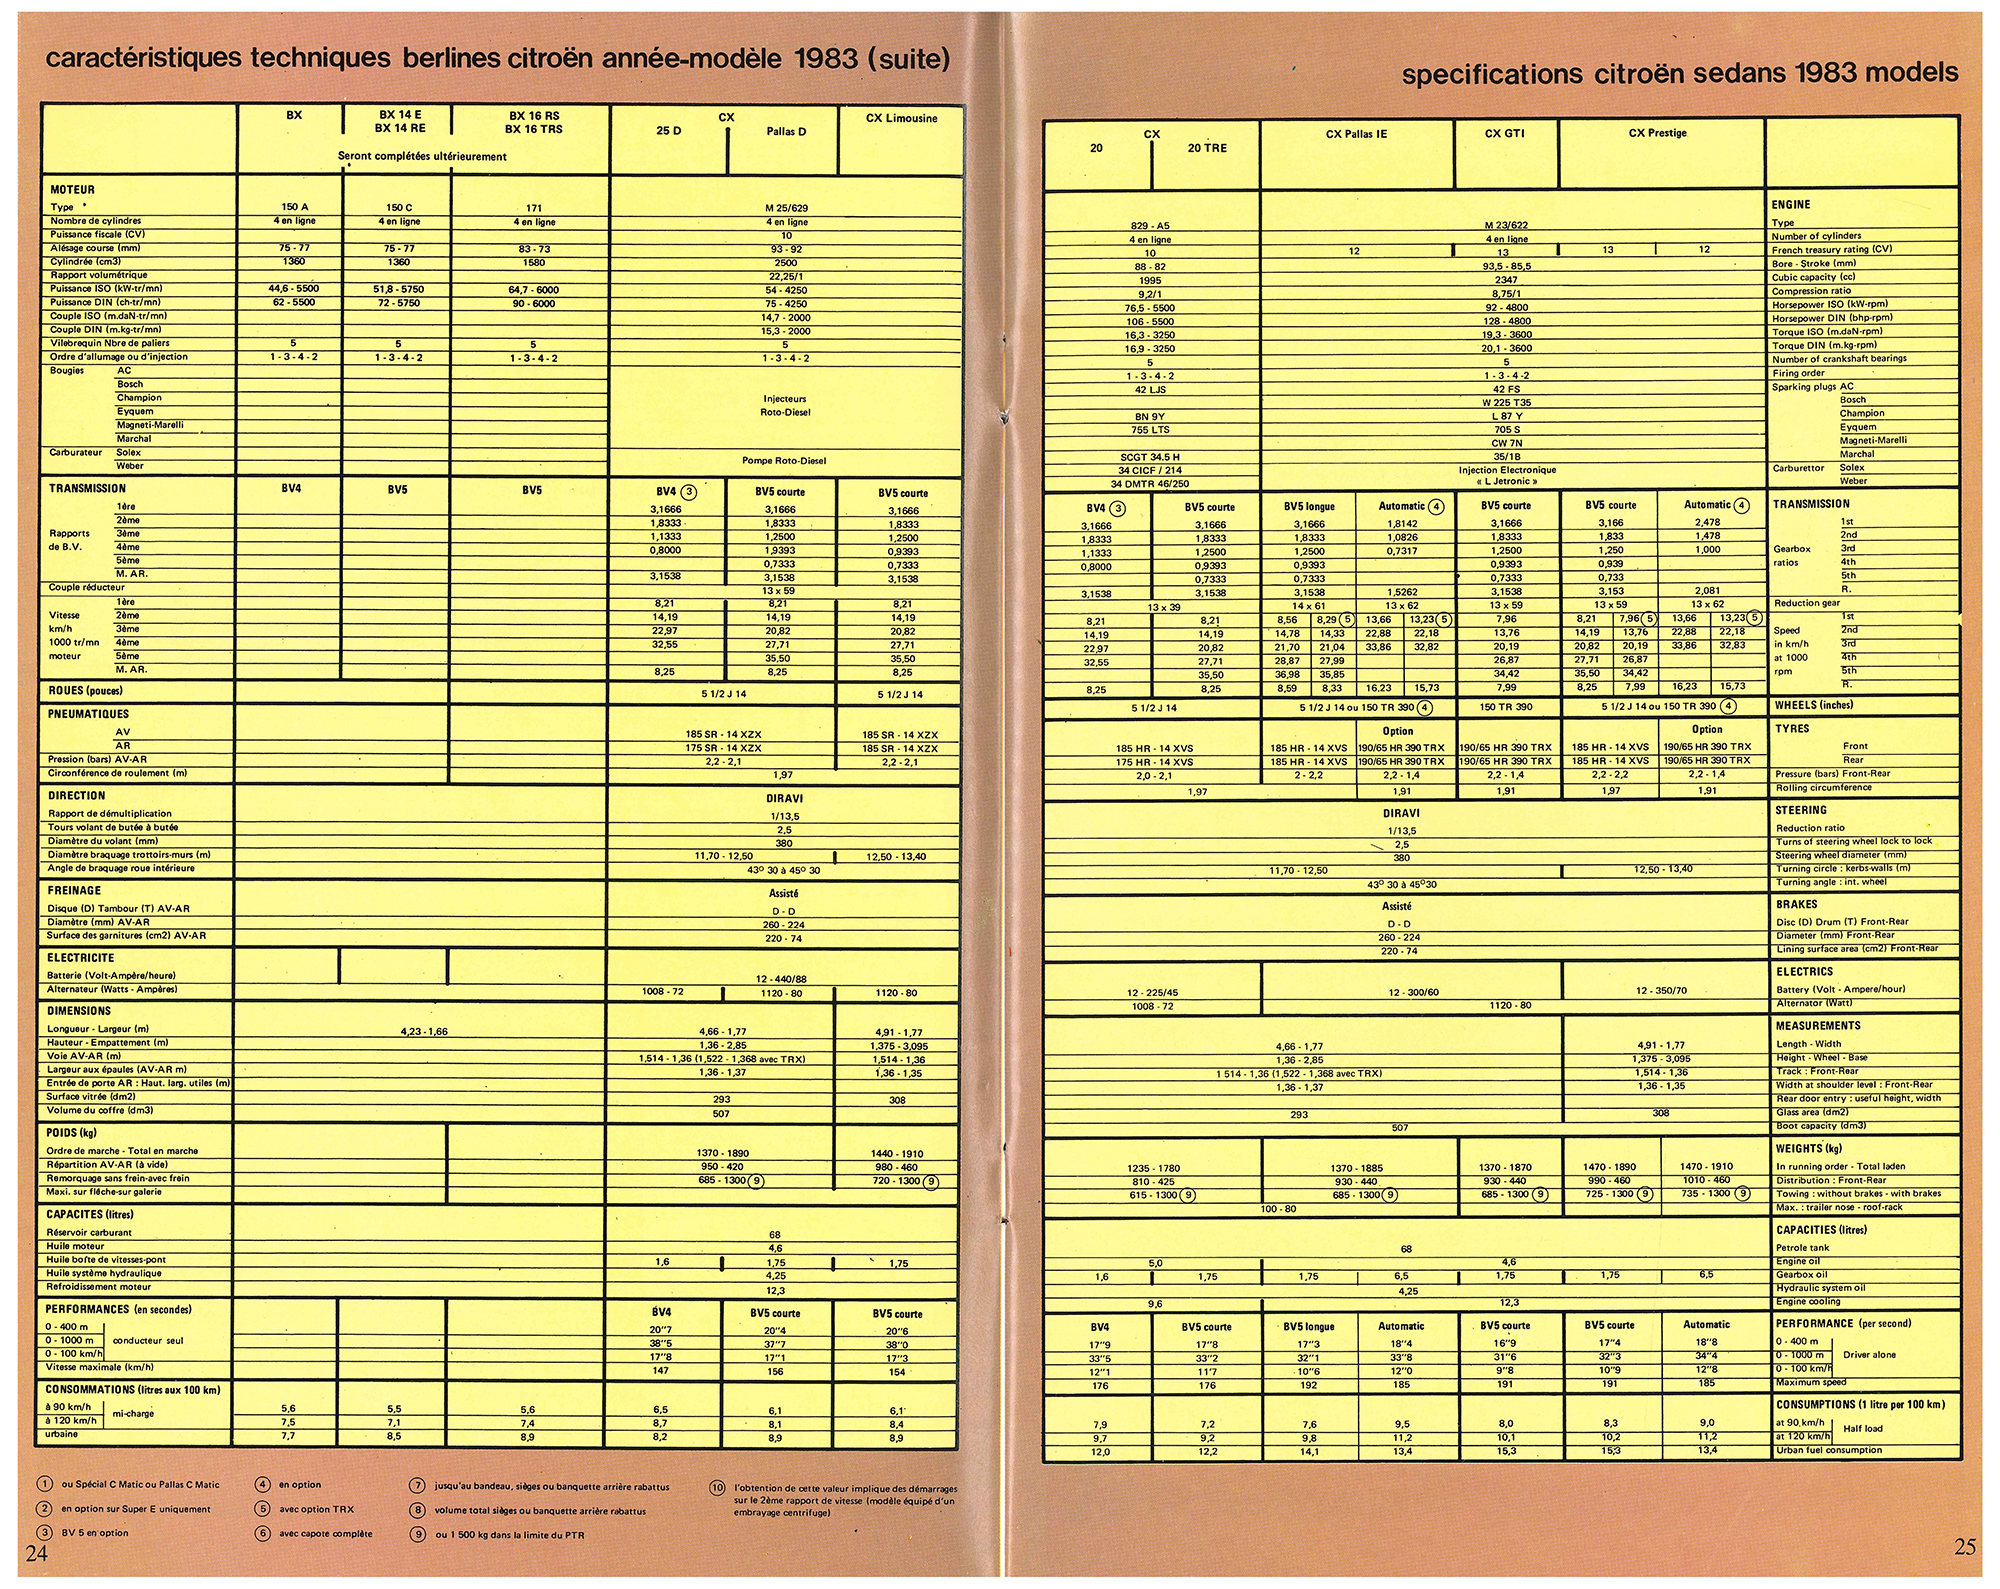 caractéristiques techniques berlines citroën année-modèle 1983 (suite)
BX
BX 14 E
BX 14 RE
BX 16 RS
BX 16 TRS
CX
25 D Pallas D
CX Limousine
Seront complétées ultérieurement
MOTEUR
Type 150 A 150 C 171 M 25/629
Nombre de cylindres 4 en ligne 4 en ligne 4 en ligne 4 en ligne
Puissance fiscale (CV) 10
Alésage course (mm) 75 - 77 75 - 77 83 - 73 93 - 92
Cylindrée (cm3) 1360 1360 1580 2500
Rapport volumétrique 22,25/1
Puissance ISO (kW-tr/mn) 44,6 - 5500 51,8 - 5750 64,7 - 6000 54 - 4250
Puissance DIN (ch-tr/mn) 62 - 5500 72 - 5750 90 - 6000 75 - 4250
Couple ISO (m.daN-tr/mn) 14,7 - 2000
Couple DIN (m.kg-tr/mn) 15,3 - 2000
Vilebrequin Nbre de paliers 5 5 5 5
Ordre d'allumage ou d'injection 1 - 3 - 4 - 2 1 - 3 - 4 - 2 1 - 3 - 4 - 2 1 - 3 - 4 - 2
Bougies AC
Bosch
Champion Injecteurs
Eyquem Roto-Diesel
Magneti-Marelli
Marchal
Carburateur Solex
Weber Pompe Roto-Diesel
TRANSMISSION BV4 BV5 BV5 BV4 ③ BV5 courte BV5 courte
1ère 3,1666 3,1666 3,1666
2ème 1,8333 1,8333 1,8333
Rapports 3ème 1,1333 1,2500 1,2500
de B.V. 4ème 0,8000 1,9393 0,9393
5ème 0,7333 0,7333
M. AR. 3,1538 3,1538 3,1538
Couple réducteur 13 x 59
1ère 8,21 8,21 8,21
Vitesse 2ème 14,19 14,19 14,19
km/h 3ème 22,97 20,82 20,82
1000 tr/mn 4ème 32,55 27,71 27,71
moteur 5ème 35,50 35,50
M. AR. 8,25 8,25 8,25
ROUES (pouces) 5 1/2 J 14 5 1/2 J 14
PNEUMATIQUES
AV 185 SR - 14 XZX 185 SR - 14 XZX
AR 175 SR - 14 XZX 185 SR - 14 XZX
Pression (bars) AV-AR 2,2 - 2,1 2,2 - 2,1
Circonférence de roulement (m) 1,97
DIRECTION DIRAVI
Rapport de démultiplication 1/13,5
Tours volant de butée à butée 2,5
Diamètre du volant (mm) 380
Diamètre braquage trottoirs-murs (m) 11,70 - 12,50 12,50 - 13,40
Angle de braquage roue intérieure 43º 30 à 45º 30
FREINAGE Assisté
Disque (D) Tambour (T) AV-AR D - D
Diamètre (mm) AV-AR 260 - 224
Surface des garnitures (cm2) AV-AR 220 - 74
ELECTRICITE
Batterie (Volt-Ampère/heure) 12 - 440/88
Alternateur (Watts - Ampères) 1008 - 72 1120 - 80 1120 - 80
DIMENSIONS
Longueur - Largeur (m) 4,23 - 1,66 4,66 - 1,77 4,91 - 1,77
Hauteur - Empattement (m) 1,36 - 2,85 1,375 - 3,095
Voie AV-AR (m) 1,514 - 1,36 (1,522 - 1,368 avec TRX) 1,514 - 1,36
Largeur aux épaules (AV-AR m) 1,36 - 1,37 1,36 - 1,35
Entrée de porte AR : Haut. larg. utiles (m)
Surface vitrée (dm2) 293 308
Volume du coffre (dm3) 507
POIDS (kg)
Ordre de marche - Total en marche 1370 - 1890 1440 - 1910
Répartition AV-AR (à vide) 950 - 420 980 - 460
Remorquage sans frein-avec frein 685 - 1300 ⑨ 720 - 1300 ⑨
Maxi. sur flèche-sur galerie
CAPACITES (litres)
Réservoir carburant 68
Huile moteur 4,6
Huile boîte de vitesses-pont 1,6 1,75 1,75
Huile système hydraulique 4,25
Refroidissement moteur 12,3
PERFORMANCES (en secondes) BV4 BV5 courte BV5 courte
0 - 400 m 20"7 20"4 20"6
0 - 1000 m conducteur seul 38"5 37"7 38"0
0 - 100 km/h 17"8 17"1 17"3
Vitesse maximale (km/h) 147 156 154
CONSOMMATIONS (litres aux 100 km)
à 90 km/h mi-charge 5,6 5,5 5,6 6,5 6,1 6,1
à 120 km/h 7,5 7,1 7,4 8,7 8,1 8,4
urbaine 7,7 8,5 8,9 8,2 8,9 8,9
① ou Spécial C Matic ou Pallas C Matic
② en option sur Super E uniquement
③ BV 5 en option
④ en option
⑤ avec option TRX
⑥ avec capote complète
⑦ jusqu'au bandeau, sièges ou banquette arrière rabattus
⑧ volume total sièges ou banquette arrière rabattus
⑨ ou 1 500 kg dans la limite du PTR
⑩ l'obtention de cette valeur implique des démarrages
sur le 2ème rapport de vitesse (modèle équipé d'un
embrayage centrifuge)
24
specifications citroën sedans 1983 models
CX
20 20 TRE
CX Pallas IE CX GTI CX Prestige
ENGINE
829 - A5 M 23/622 Type
4 en ligne 4 en ligne Number of cylinders
10 12 13 13 12 French treasury rating (CV)
88 - 82 93,5 - 85,5 Bore - Stroke (mm)
1995 2347 Cubic capacity (cc)
9,2/1 8,75/1 Compression ratio
76,5 - 5500 92 - 4800 Horsepower ISO (kW-rpm)
106 - 5500 128 - 4800 Horsepower DIN (bhp-rpm)
16,3 - 3250 19,3 - 3600 Torque ISO (m.daN-rpm)
16,9 - 3250 20,1 - 3600 Torque DIN (m.kg-rpm)
5 5 Number of crankshaft bearings
1 - 3 - 4 - 2 1 - 3 - 4 - 2 Firing order
42 LJS 42 FS Sparking plugs AC
W 225 T35 Bosch
BN 9Y L 87 Y Champion
755 LTS 705 S Eyquem
CW 7N Magneti-Marelli
SCGT 34.5 H 35/1B Marchal
34 CICF / 214 Injection Electronique Carburettor Solex
34 DMTR 46/250 « L Jetronic » Weber
BV4 ③ BV5 courte BV5 longue Automatic ④ BV5 courte BV5 courte Automatic ④ TRANSMISSION
3,1666 3,1666 3,1666 1,8142 3,1666 3,166 2,478 1st
1,8333 1,8333 1,8333 1,0826 1,8333 1,833 1,478 2nd
1,1333 1,2500 1,2500 0,7317 1,2500 1,250 1,000 Gearbox 3rd
0,8000 0,9393 0,9393 0,9393 0,939 ratios 4th
0,7333 0,7333 0,7333 0,733 5th
3,1538 3,1538 3,1538 1,5262 3,1538 3,153 2,081 R.
13 x 39 14 x 61 13 x 62 13 x 59 13 x 59 13 x 62 Reduction gear
8,21 8,21 8,56 8,29 ⑤ 13,66 13,23 ⑤ 7,96 8,21 7,96 ⑤ 13,66 13,23 ⑤ 1st
14,19 14,19 14,78 14,33 22,88 22,18 13,76 14,19 13,76 22,88 22,18 Speed 2nd
22,97 20,82 21,70 21,04 33,86 32,82 20,19 20,82 20,19 33,86 32,83 in km/h 3rd
32,55 27,71 28,87 27,99 26,87 27,71 26,87 at 1000 4th
35,50 36,98 35,85 34,42 35,50 34,42 rpm 5th
8,25 8,25 8,59 8,33 16.23 15,73 7,99 8,25 7,99 16,23 15,73 R.
5 1/2 J 14 5 1/2 J 14 ou 150 TR 390 ④ 150 TR 390 5 1/2 J 14 ou 150 TR 390 ④ WHEELS (inches)
Option Option TYRES
185 HR - 14 XVS 185 HR - 14 XVS 190/65 HR 390 TRX 190/65 HR 390 TRX 185 HR - 14 XVS 190/65 HR 390 TRX Front
175 HR - 14 XVS 185 HR - 14 XVS 190/65 HR 390 TRX 190/65 HR 390 TRX 185 HR - 14 XVS 190/65 HR 390 TRX Rear
2,0 - 2,1 2 - 2,2 2,2 - 1,4 2,2 - 1,4 2,2 - 2,2 2,2 - 1,4 Pressure (bars) Front-Rear
1,97 1,91 1,91 1,97 1,91 Rolling circumference
DIRAVI STEERING
1/13,5 Reduction ratio
2,5 Turns of steering wheel lock to lock
380 Steering wheel diameter (mm)
11,70 - 12,50 12,50 - 13,40 Turning circle : kerbs-walls (m)
43º 30 à 45º30 Turning angle : int. wheel
Assisté BRAKES
D - D Disc (D) Drum (T) Front-Rear
260 - 224 Diameter (mm) Front-Rear
220 - 74 Lining surface area (cm2) Front-Rear
ELECTRICS
12 - 225/45 12 - 300/60 12 - 350/70 Battery (Volt - Ampere/hour)
1008 - 72 1120 - 80 Alternator (Watt)
MEASUREMENTS
4,66 - 1,77 4,91 - 1,77 Length - Width
1,36 - 2,85 1,375 - 3,095 Height - Wheel - Base
1 514 - 1,36 (1,522 - 1,368 avec TRX) 1,514 - 1,36 Track : Front-Rear
1,36 - 1,37 1,36 - 1,35 Width at shoulder level : Front-Rear
Rear door entry : useful height, width
293 308 Glass area (dm2)
507 Boot capacity (dm3)
WEIGHTS (kg)
1235 - 1780 1370 - 1885 1370 - 1870 1470 - 1890 1470 - 1910 In running order - Total laden
810 - 425 930 - 440 930 - 440 990 - 460 1010 - 460 Distribution : Front-Rear
615 - 1300 ⑨ 685 - 1300 ⑨ 685 - 1300 ⑨ 725 - 1300 ⑨ 735 - 1300 ⑨ Towing : without brakes - with brakes
100 - 80 Max. : trailer nose - roof-rack
CAPACITIES (litres)
68 Petrole tank
5,0 4,6 Engine oil
1,6 1,75 1,75 6,5 1,75 1,75 6,5 Gearbox oil
4,25 Hydraulic system oil
9,6 12,3 Engine cooling
BV4 BV5 courte BV5 longue Automatic BV5 courte BV5 courte Automatic PERFORMANCE (per second)
17"9 17"8 17"3 18"4 16"9 17"4 18"8 0 - 400 m
33"5 33"2 32"1 33"8 31"6 32"3 34"4 0 - 1000 m Driver alone
12"1 11'7 10"6 12"0 9"8 10"9 12"8 0 - 100 km/h
176 176 192 185 191 191 185 Maximum speed
CONSUMPTIONS (1 litre per 100 km)
7,9 7,2 7,6 9,5 8,0 8,3 9,0 at 90 km/h Half load
9,7 9,2 9,8 11,2 10,1 10,2 11,2 at 120 km/h
12,0 12,2 14,1 13,4 15,3 15,3 13,4 Urban fuel consumption
25